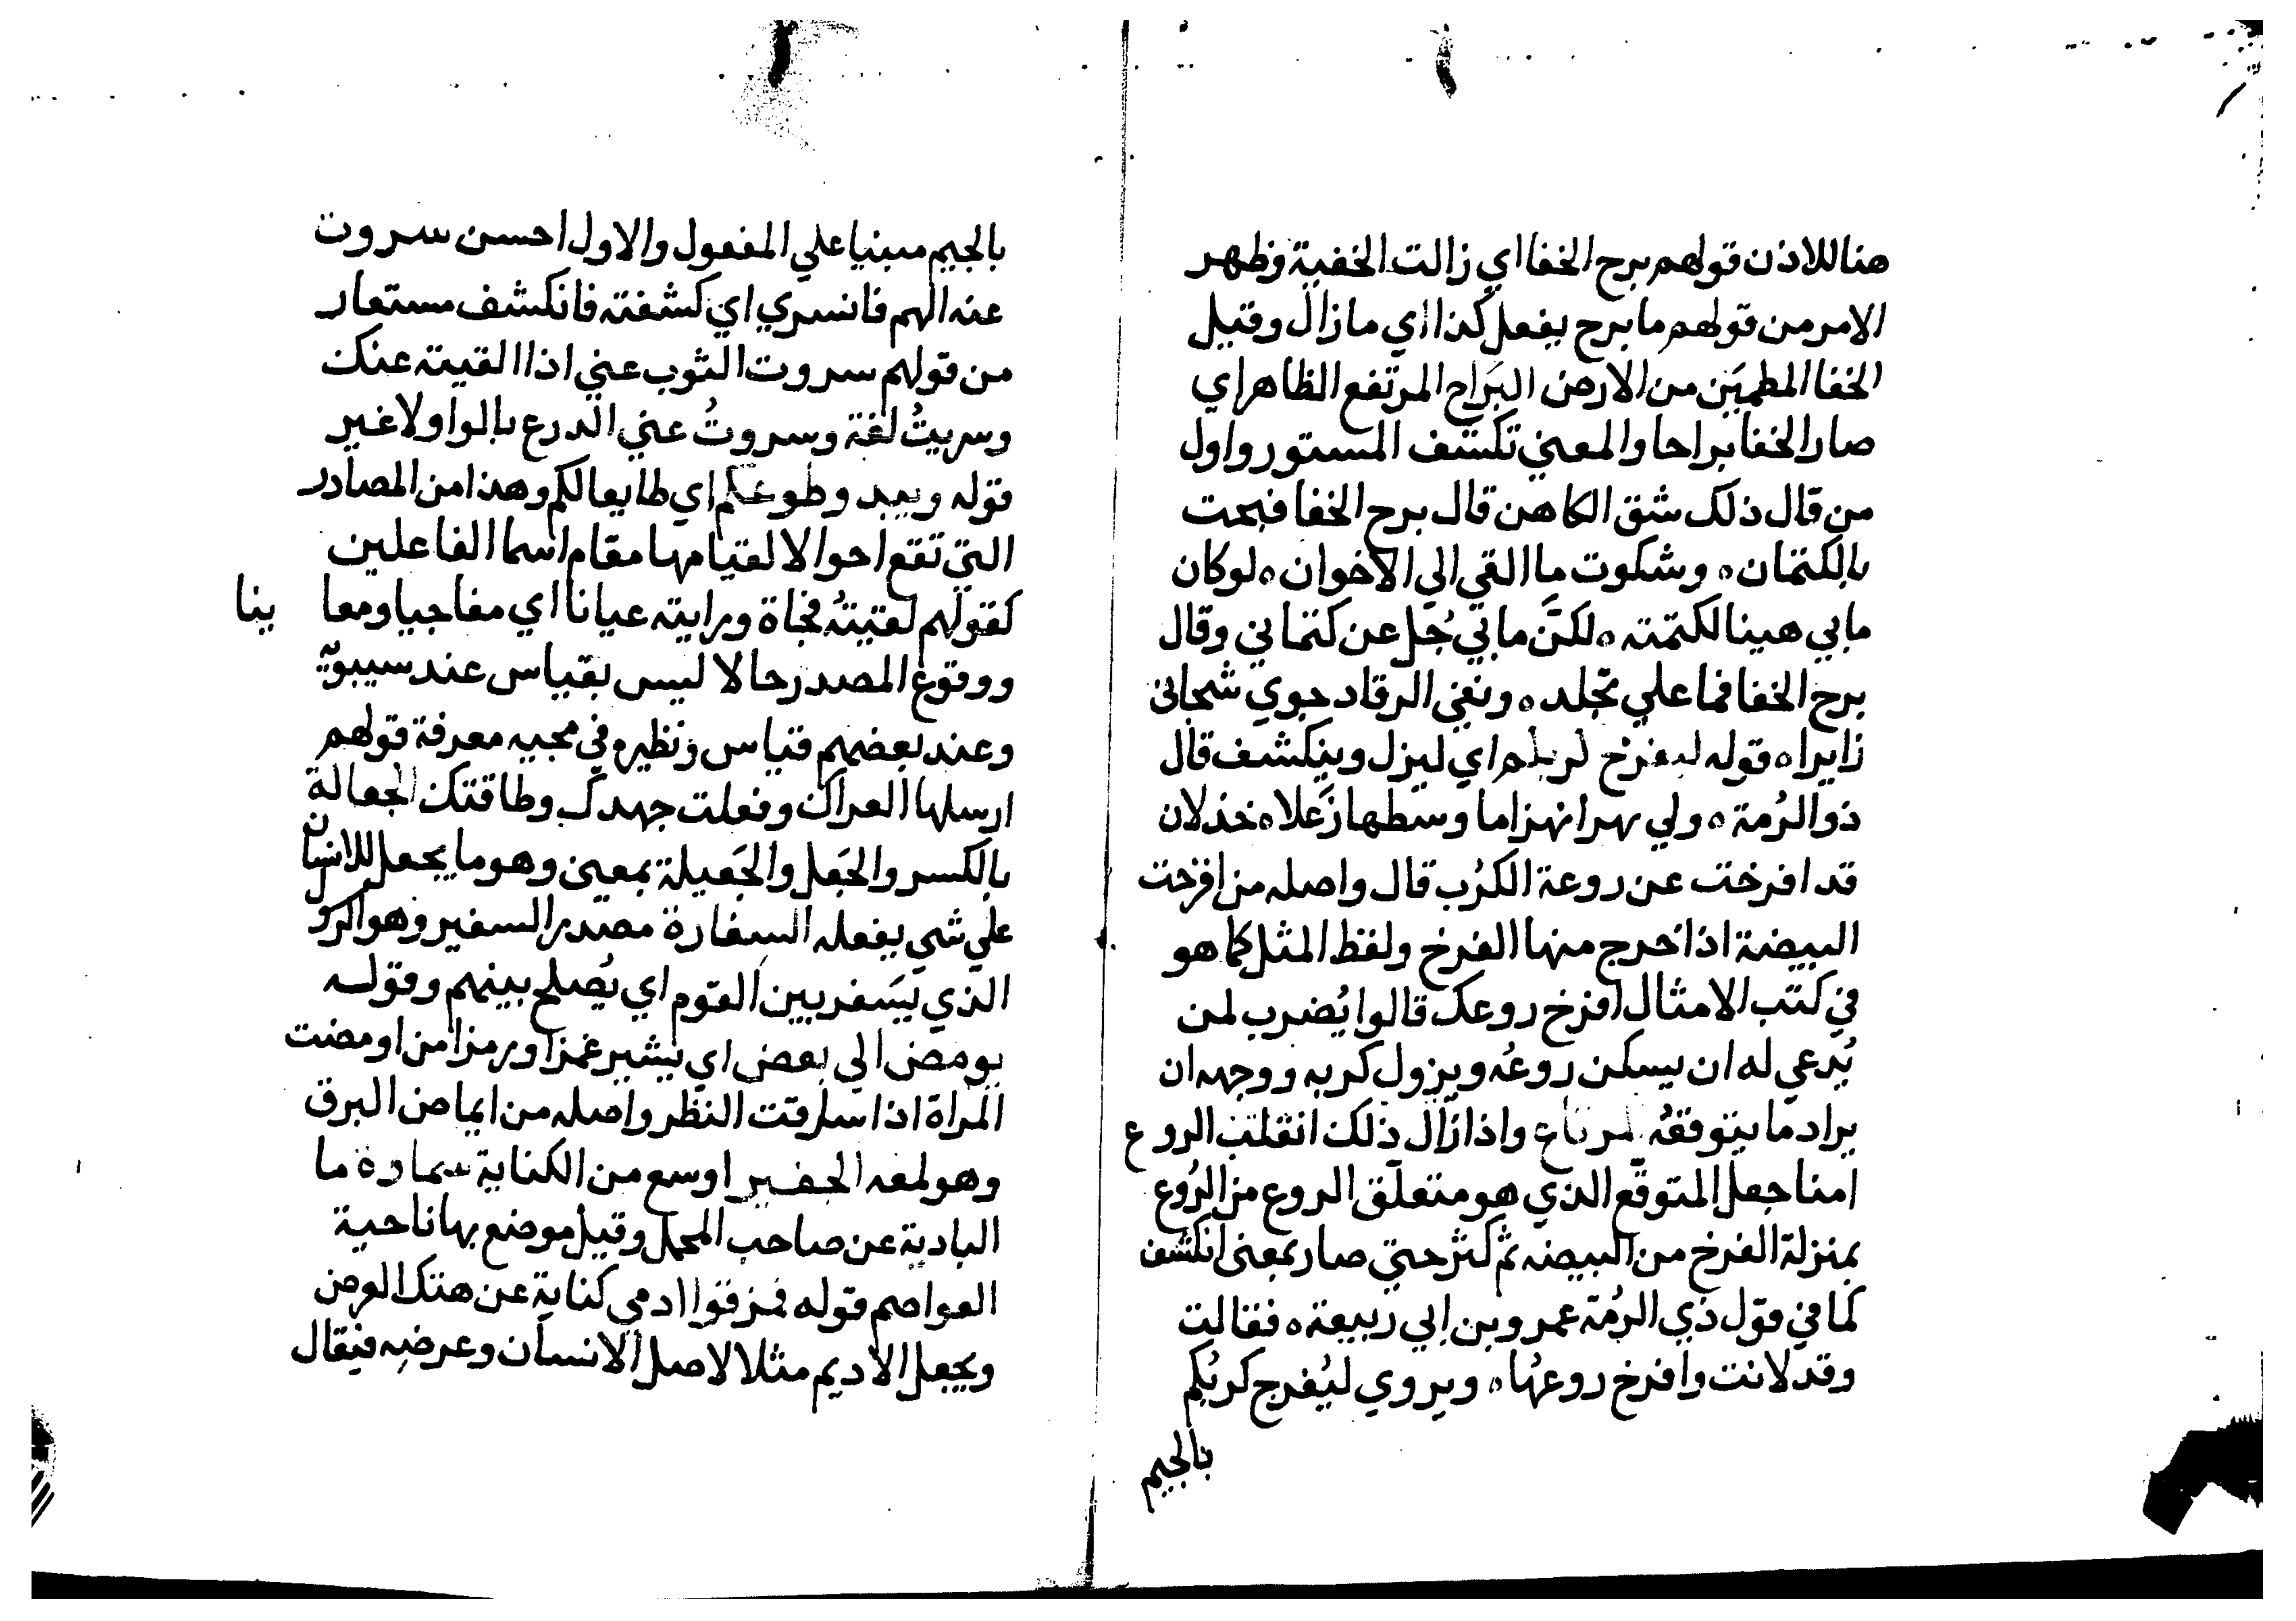 هنا للاذن قولهم برح الخفا اي زالت الخفية وظهر
الامر من قولهم ما برح يفعل كذا اي ما زال وقيل
الخفا المطمين من الارض البَراح المرتفع الظاهر اي
صار الخفا براحا والمعني تكشف المستور واول
من قال ذلك شق الكاهن قال برح الخفا فبحت
بالكتمان ه وشكوت ما القي الي الاخوان ه لو كان
ما بي هينا لكتمته ه لكنَّ ما بي جُل عن كتماني وقال
برح الخفا فما علي تجلد ه ونفي الرقاد جوي شجاني
زايرا ه قوله ليفرخ اي ليزل وينكشف قال
ذو الرُمة ه ولي يهرا نهزاما وسطها زَعلا ه خذلان
قد افرخت عن روعة الكرُب قال واصله من افرخت
البيضة اذا خرج منها الفرخ ولفظ المثل كما هو
في كتب الامثال افرخ روعك قالوا يُضرب لمن
يُدعي له ان يسكن روعُه ويزول كربه ووجهه ان
يراد ما يتوقعُه المرتاع واذا زال ذلك انقلب الروع
امنا جعل المتوقع الذي هو متعلق الروع من الرُوع
بمنزلة الفرخ من البيضه ثم كثر حتي صار بمعني انكشف
كما في قول ذي الرُمة عمرو بن ابي ربيعة ه فقالت
وقد لانت وافرخ روعهُا ه ويروي ليُفرج كربُكم
بالجيم
بالجيم مبنيا علي المفعول والاول احسن سروت
عنه الهم فانسري اي كشفته فانكشف مستعار
من قولهم سروت الثوب عني اذا القيته عنك
وسريتُ لغة وسروتُ عني الدرع بالواو لا غير
قوله وطوعكم اي طايعا لكم وهذا من المصادر
التي تقع احوالا لقيامها مقام اسما الفاعلين
كقولهم لقيتهُ فجاة ورايته عيانا اي مفاجيا ومعاينا
ووقوع المصدر حالا ليس بقياس عند سيبويه
وعند بعضهم قياس ونظيره في مجيه معرفة قولهم
ارسلها العراك وفعلت جهدك وطاقتك الجعالة
بالكسر والجَعل والجَعيلة بمعني وهو ما يجعل للانسان
علي شي يفعله السفارة مصدر السفير وهو الرسول
الذي يَسفر بين القوم اي يُصلح بينهم وقوله
يومض الي بعض اي يشير غمزا ورمزا من اومضت
المراة اذا سارقت النظر واصله من ايماض البرق
وهو لمعه الخفير اوسع من الكناية ما
البادية عن صاحب المحمل وقيل موضع بها ناحية
العواصم قوله فمزقوا ادمي كناية عن هتك العرض
ويجعل الاديم مثلا لاصل الانسان وعرضه فيقال